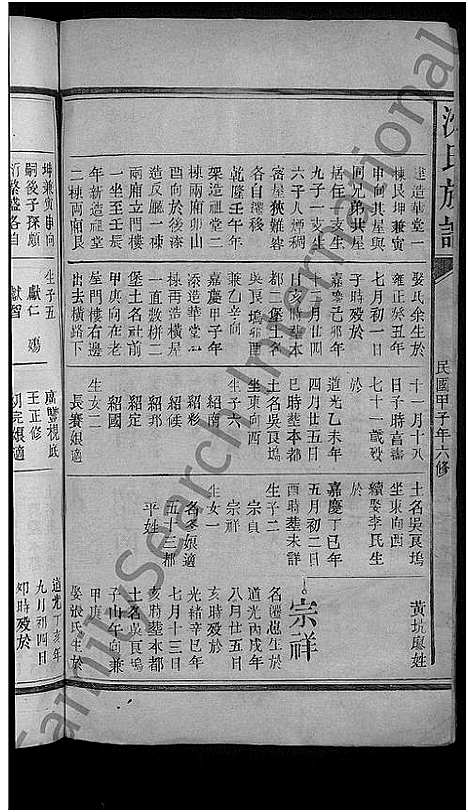 氏族譜
民國甲子年六修
建造華堂一
棟艮坤兼寅
申向其屋與
同兄弟共屋
居住一支生
九子一支生
六子人煙稠
密屋狹難容
各自遷移
乾隆壬午年
架造祖堂二
棟兩廂卯山
酉向於後湊
造反廳一棟
兩廂立門樓
一坐至壬辰
年新造祖堂
二棟兩廂艮
坤兼寅申向
嗣後子孫願
衍繁盛各自
娶氏余生於
雍正癸丑年
七月初一日
子時歿於
嘉慶己卯年
十二月廿四
日亥時塟本
都二堡土名
吳良塢卯酉
兼乙辛向
嘉慶甲子年
添造華堂一
棟兩造橫屋
一直數栟二
堡土名社前
甲庚向在老
屋門樓右邊
出去橫路下
生子五
獻仁 鴻
獻智
十一月十八
日子時高壽
七十一歲歿
於
道光乙未年
四月廿五日
巳時塟本都
土名吳良塢
坐東向西
生子六
紹南
紹傔
紹邦
紹定
紹國
生女二
長賽娘適
王正修
土名吳良塢
坐東向西
續娶李氏生
於
嘉慶丁巳年
五月初二日
酉時塟未詳
生子二
宗貞
宗祥
生女一
名冬娘適
五十三都
平姓
黃坑廖姓
宗祥
名瀗懋生於
道光丙戌年
八月廿五日
亥時歿於
光緒辛巳年
七月十三日
亥時塟本都
土名吳良塢
子山午向兼
甲庚
娶張氏生於
道光丁亥年
九月初四日
卯時歿於
FamilySearch International